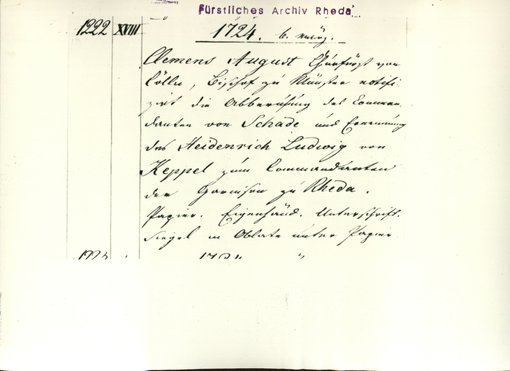 Fürstliches Archiv Rheda
1222 XVIII 1724. 6. März.
Clemens August Churfürst von
Cölln, Bischof zu Münster notifi
zirt die Abberufung des Comman
danten von Schade und Ernennung
des Heidenrich Ludwig von
Keppel zum Commandanten
der Garnison zu Rheda.
Papier. Eigenhänd. Unterschrift.
Siegel in Oblate unter Papier.